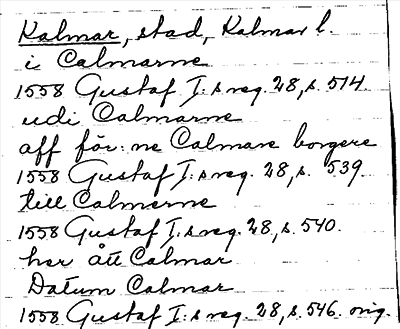 Kalmar, stad, Kalmar l.
i Calmarne
1558 Gustaf I:s reg. 28, s. 514.
udi Calmarne
aff för:ne Calmare borgere
1558 Gustaf I:s reg. 28, s. 539.
till Calmerne
1558 Gustaf I:s reg. 28, s. 540.
herått Calmar
Datum Calmar
1558 Gustaf I:s reg. 28, s. 546. orig.